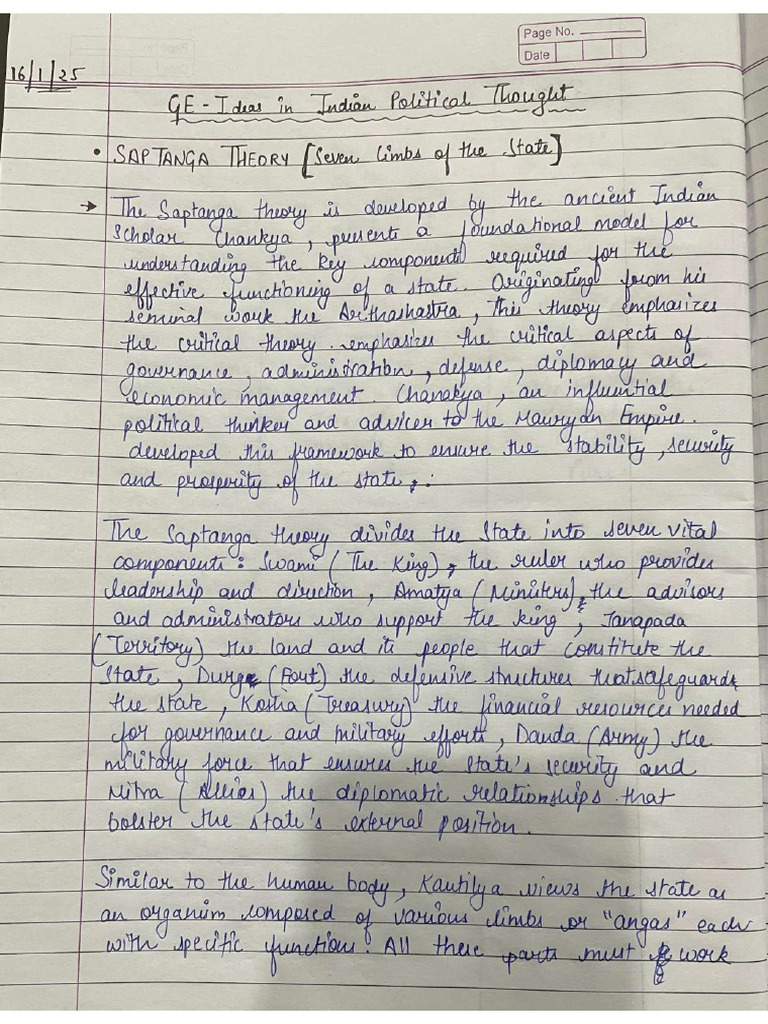 Page No.
Date
16/1/25
GE - Ideas in Indian Political Thought
• SAPTANGA THEORY [Seven limbs of the State]
→ The Saptanga theory is developed by the ancient Indian
Scholar Chankya, presents a foundational model for
understanding the key components required for the
effective functioning of a state. Originating from his
seminal work the Arthashastra, this theory emphasizes
the critical theory. emphasizes the critical aspects of
governance, administration, defense, diplomacy and
economic management. Chanakya, an influential
political thinker and advicer to the Mauryan Empire.
developed this framework to ensure the stability, security
and prosperity of the state,:
The Saptanga theory divides the State into seven vital
components: Swami (The King), the ruler who provides
leadership and direction, Amatya (Ministers), the advisors
and administrators who support the king, Janapada
(Territory) the land and its people that constitute the
state, Durg (Fort) the defensive structures that safeguards
the state, Kosha (Treasury) the financial resources needed
for governance and military efforts, Danda (Army) the
military force that ensures the state's security and
Mitra (Allies) the diplomatic relationships that
bolster the state's external position.
Similar to the human body, Kautilya views the state as
an organism composed of various limbs or "angas" each
with specific functions. All these parts must work